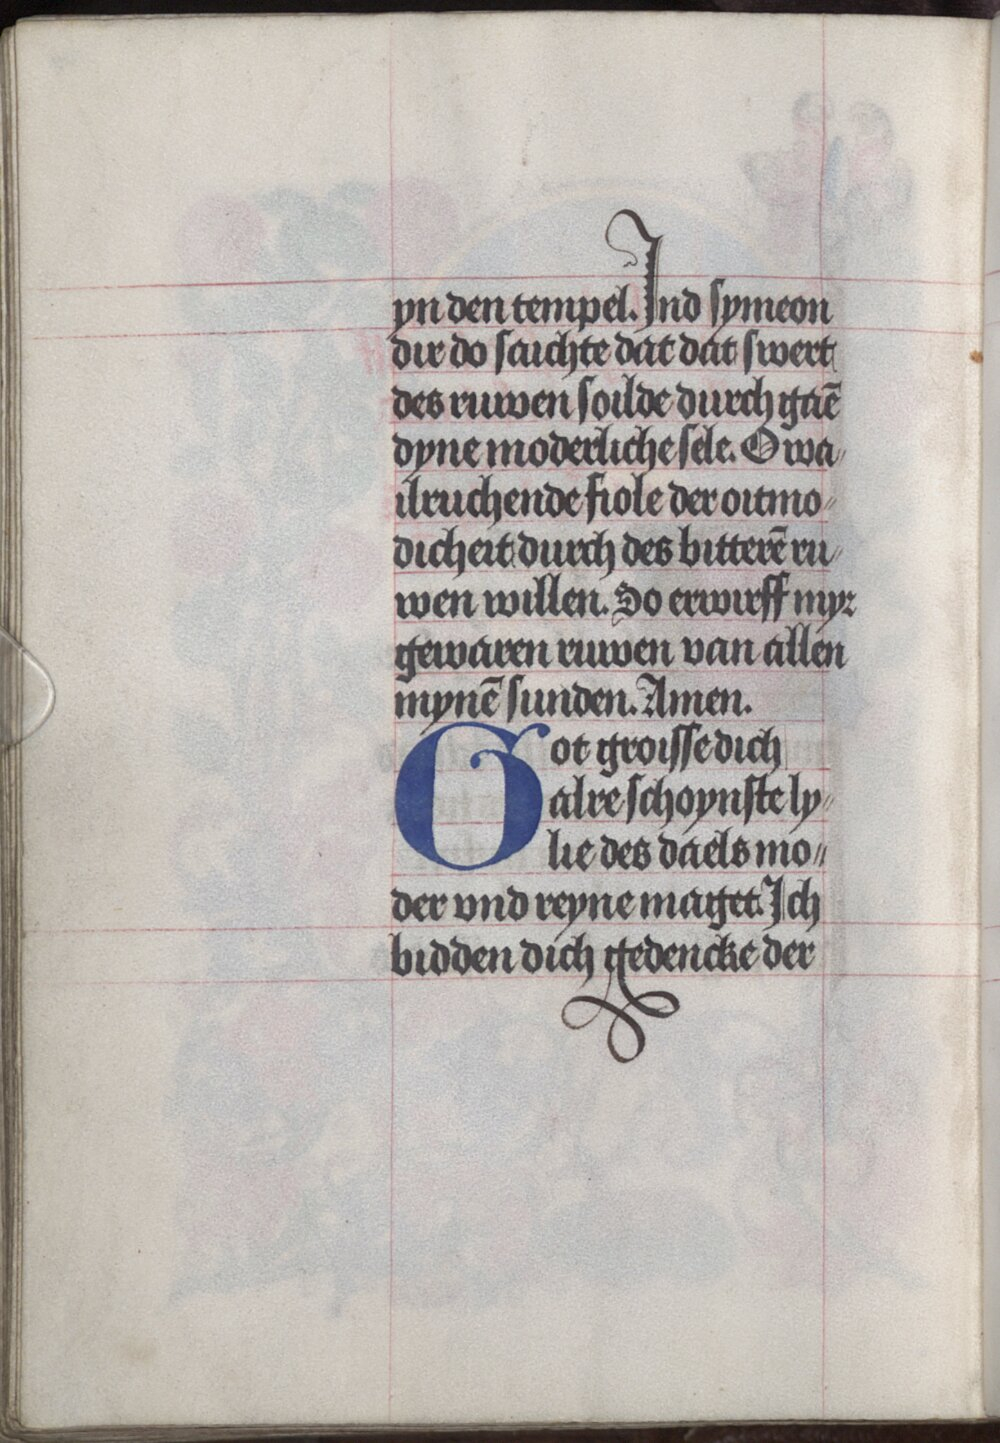 yn den tempel. Ind symeon
dir do saichte dat dat swert
des ruwen soilde durch gaē
dyne moderliche sele. O wa⸗
ilruchende fiole der oitmo⸗
dicheit durch des bitterē ru⸗
wen willen. So erwirff myr
gewaren ruwen van allen
mynē sunden. Amen.
Got groisse dich
alre schoynste ly⸗
lie des daels mo⸗
der vnd reyne maget. Ich
bidden dich gedencke der